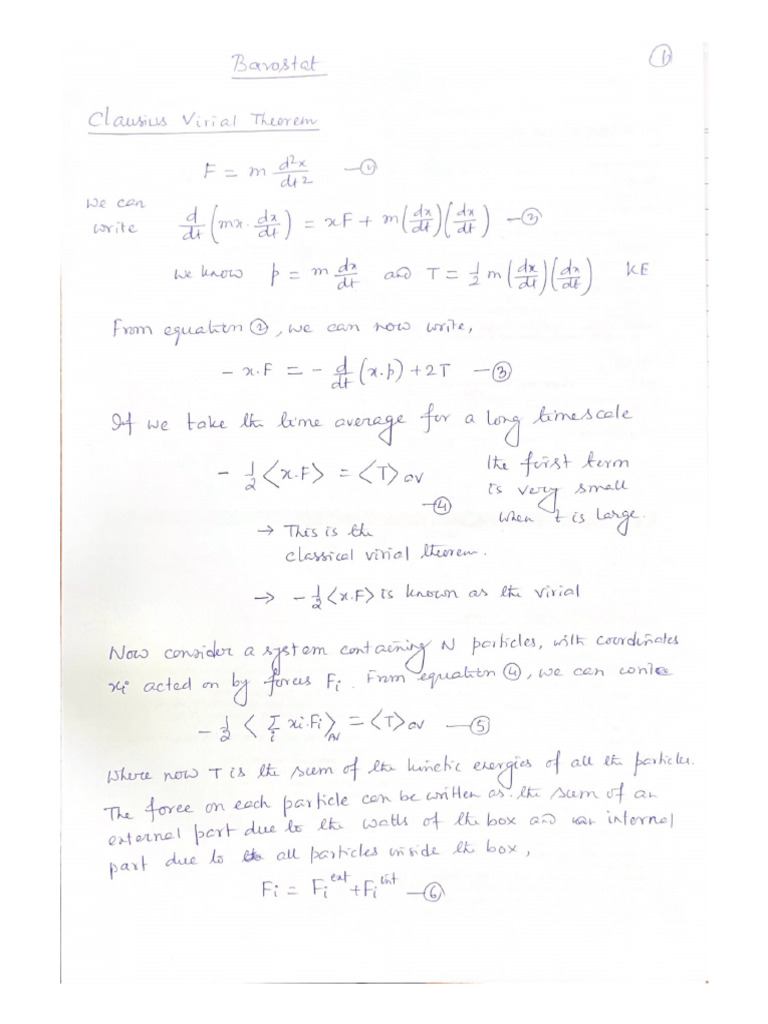 Barostat
1
Clausius Virial Theorem
F = m d²x/dt² —①
we can
write d/dt (mx · dx/dt) = xF + m (dx/dt)(dx/dt) —②
We know p = m dx/dt and T = 1/2 m (dx/dt)(dx/dt) KE
From equation ②, we can now write,
- x.F = - d/dt (x.p) + 2T —③
If we take the time average for a long timescale
- 1/2 <x.F> = <T>av —④
the first term
is very small
when t is large.
→ This is the
classical virial theorem.
→ - 1/2 <x.F> is known as the virial
Now consider a system containing N particles, with coordinates
xi acted on by forces Fi. From equation ④, we can write
- 1/2 < Σi xi.Fi >AV = <T>av —⑤
Where now T is the sum of the kinetic energies of all the particles.
The force on each particle can be written as the sum of an
external part due to the walls of the box and an internal
part due to all particles inside the box,
Fi = Fi^ext + Fi^int —⑥